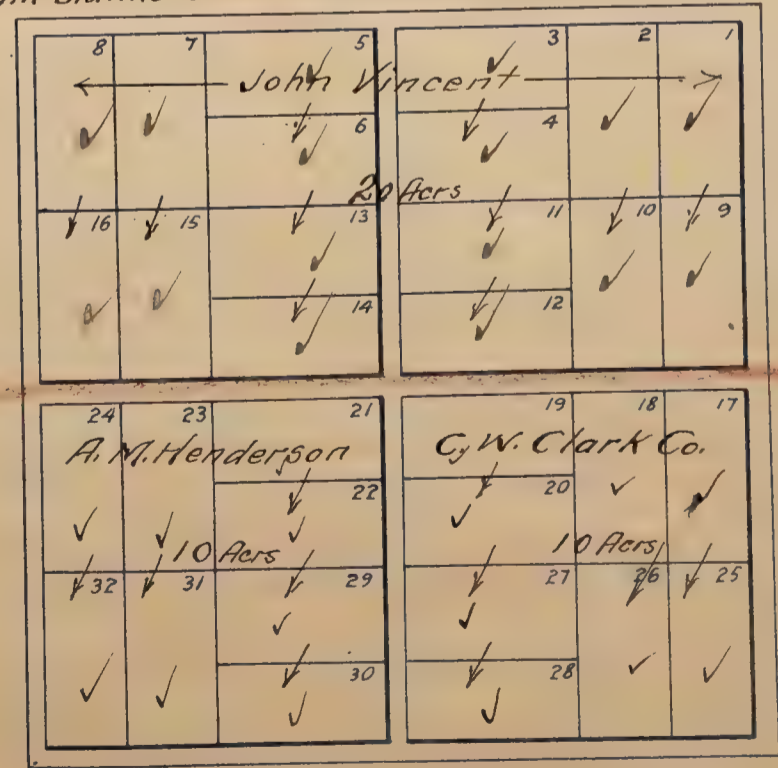 8 7 5 3 2 1
John Vincent
6 4
20 Acrs
16 15 13 11 10 9
14 12
24 23 21 19 18 17
A. M. Henderson C, W. Clark Co.
22 20
10 Acrs 10 Acrs
32 31 29 27 26 25
30 28